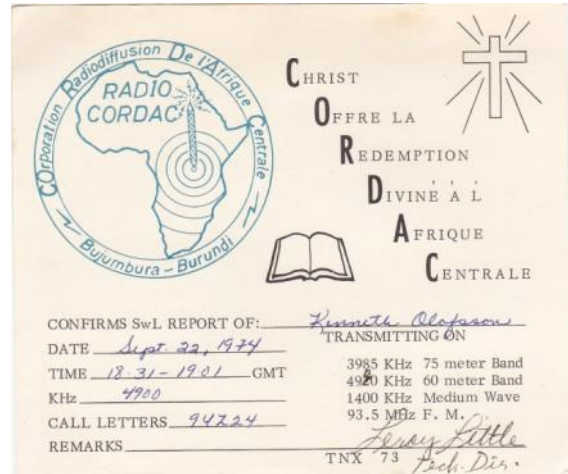 COrporation Radiodiffusion De l'Afrique Centrale
RADIO
CORDAC
Bujumbura - Burundi
CHRIST
OFFRE LA
REDEMPTION
DIVINE A L
AFRIQUE
CENTRALE
CONFIRMS SwL REPORT OF: Kenneth Olofsson
TRANSMITTING ON
DATE Sept. 22, 1974
TIME 18.31 - 1901 GMT
KHz 4900
CALL LETTERS 94Z24
REMARKS
3985 KHz 75 meter Band
KHz 60 meter Band
1400 KHz Medium Wave
93.5 MHz F. M.
TNX 73
Leroy Little
Tech. Dir.